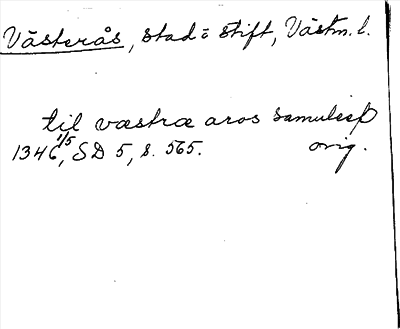 Västerås, stad o stift, Västm. l.
til væstræ aros samuleið
1346 1/5, SD 5, s. 565. orig.